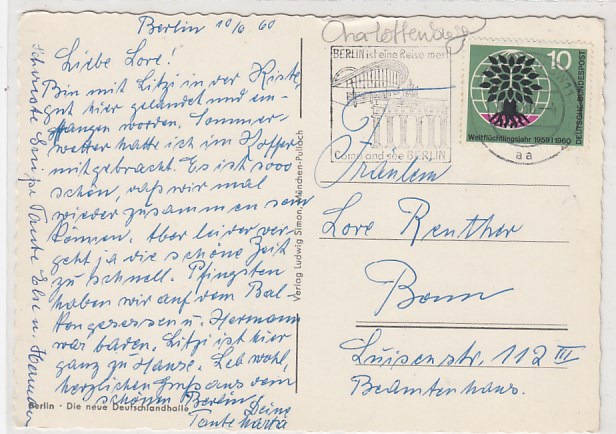 Berlin 10/6 60
Liebe Lore!
Bin mit Litzi in der Kiste
gut hier gelandet und em-
pfangen worden. Sommer-
wetter hatte ich im Koffer
mitgebracht. Es ist sooo
schön, daß wir mal
wieder zusammen sein
können. Aber leider ver-
geht ja die schöne Zeit
zu schnell. Pfingsten
haben wir auf dem Bal-
kon gesessen u. Hermann
war baden. Litzi ist hier
ganz zu Hause. Leb wohl,
herzlichen Gruß aus dem
schönen Berlin
Deine
Tante
Schönste Tante Else u. Hermann
Berlin · Die neue Deutschlandhalle
Verlag Ludwig Simon, München-Pullach
Charlottenburg
BERLIN ist eine Reise wert
Come and see BERLIN
aa
10
DEUTSCHE BUNDESPOST
Weltflüchtlingsjahr 1959/1960
Fräulein
Lore Renther
Bonn
Luisenstr. 112 III
Beamtenhaus.